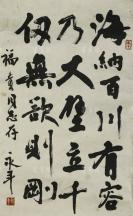 海納百川有容
乃大壁立千
仞無欲則剛
福貴同志存
永年